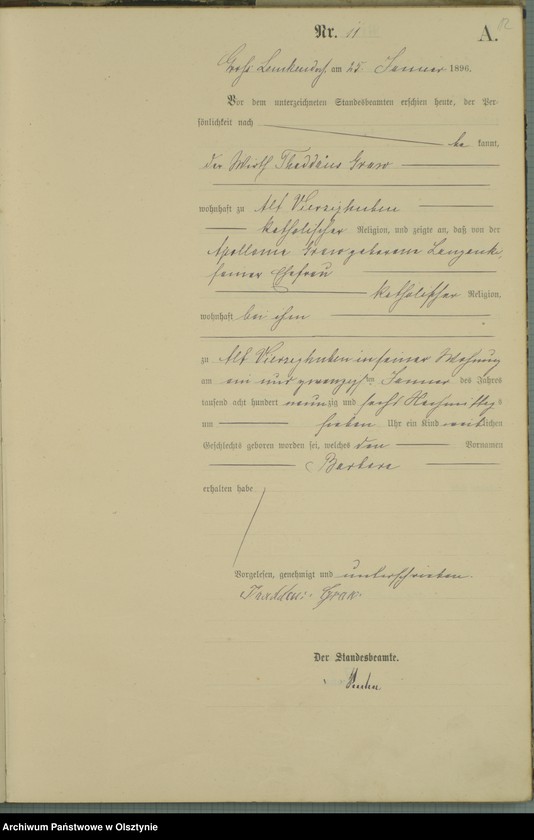 Nr. 11
A.
Groß Lemkendorf am 25 Januar 1896.
Vor dem unterzeichneten Standesbeamten erschien heute, der Per-
sönlichkeit nach
be kannt,
der Wirth Thaddäus Graw
wohnhaft zu Alt Vierzighuben
katholischer Religion, und zeigte an, daß von der
Apollonia Graw geborenen
seiner Ehefrau
katholischer Religion,
wohnhaft bei ihm
zu Alt Vierzighuben in seiner Wohnung
am ein und zwanzigsten Januar des Jahres
tausend acht hundert neunzig und sechs Nachmittags
um sieben Uhr ein Kind weiblichen
Geschlechts geboren worden sei, welches den Vornamen
Barbara
erhalten habe
Vorgelesen, genehmigt und unterschrieben.
Graw
Der Standesbeamte.
Archiwum Państwowe w Olsztynie